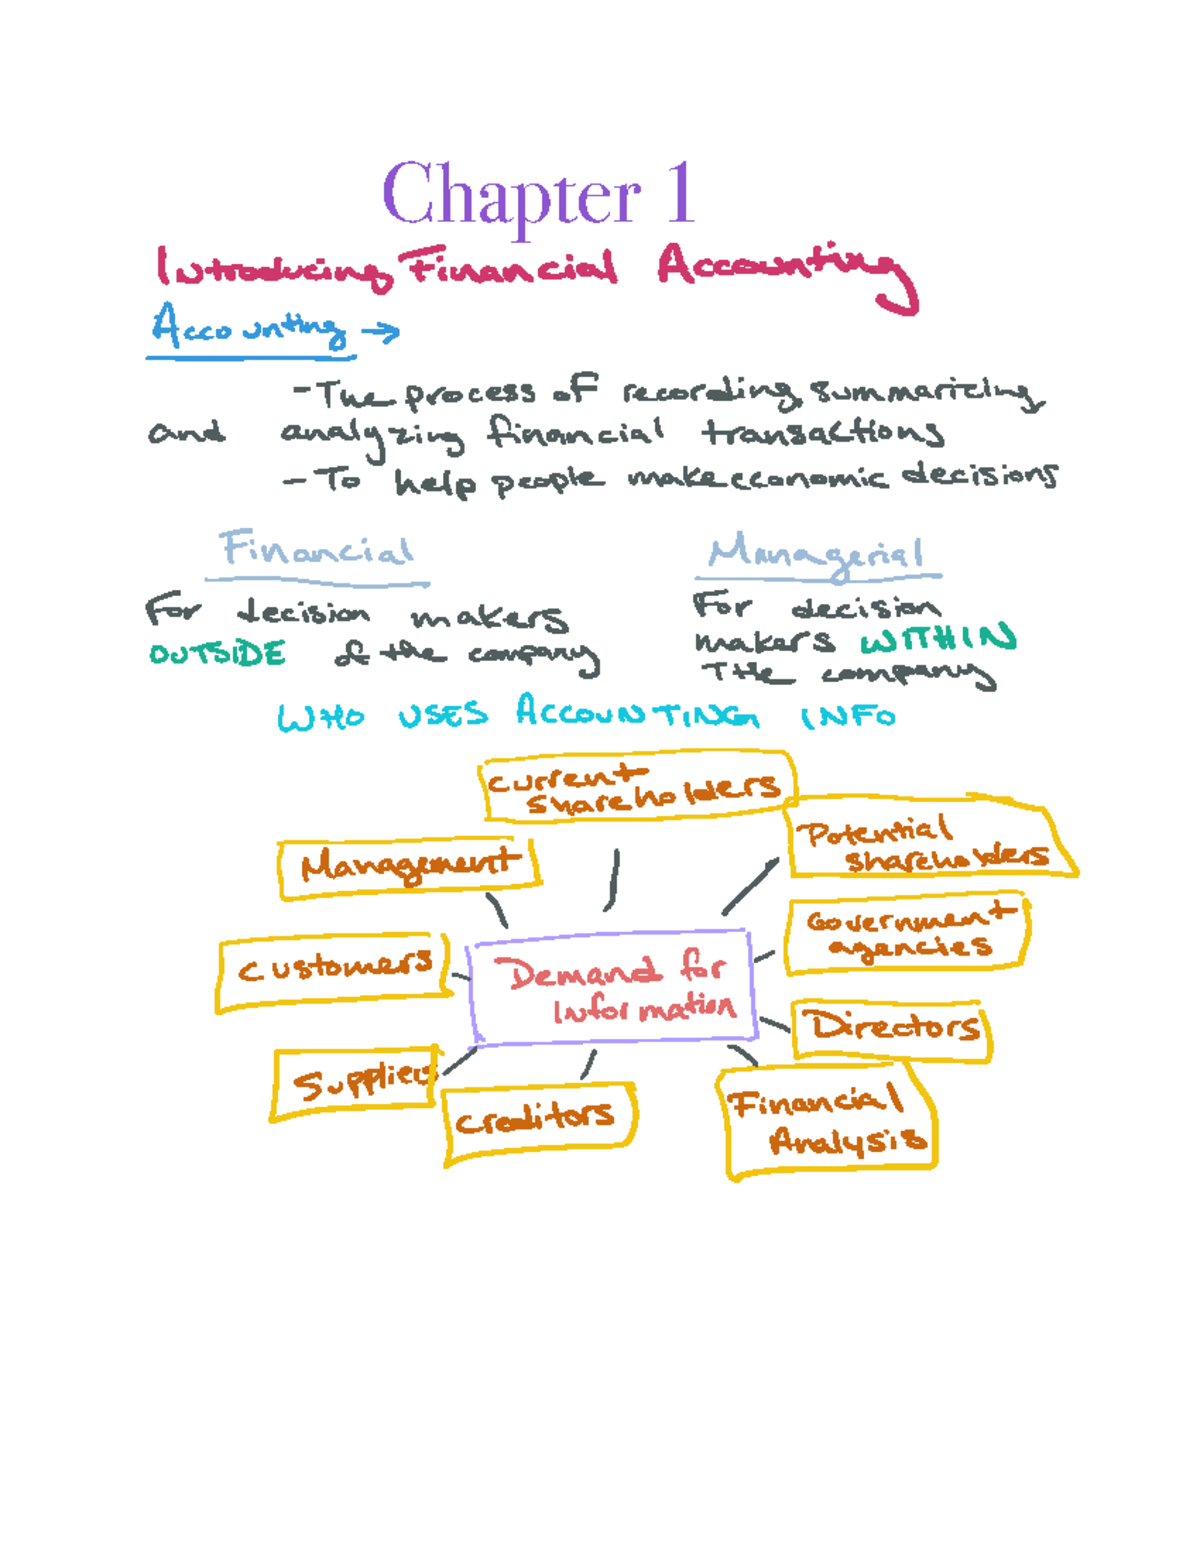 Chapter 1
Introducing Financial Accounting
Accounting →
- The process of recording, summarizing
and analyzing financial transactions
- To help people make economic decisions
Financial
Managerial
For decision makers
OUTSIDE of the company
For decision
makers WITHIN
THe company
WHO USES ACCOUNTING INFO
current
shareholders
Potential
shareholders
Management
Government
agencies
Customers
Demand for
Information
Directors
Suppliers
Creditors
Financial
Analysis